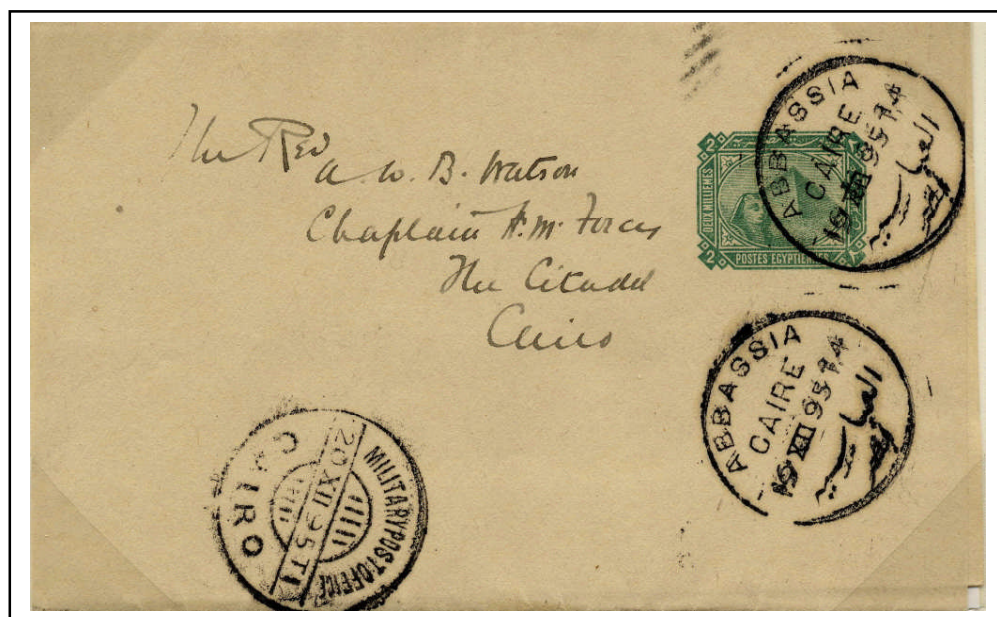 The Rev
A. W. B. Watson
Chaplain H.M. Forces
The Citadel
Cairo
2 2
DEUX MILLIEMES
POSTES EGYPTIENNES
2
ABBASSIA
CAIRE
19 XII 95 T4
العباسية
ABBASSIA
CAIRE
19 XII 95 T4
العباسية
MILITARY POST OFFICE
20 XII 95 T1
CAIRO